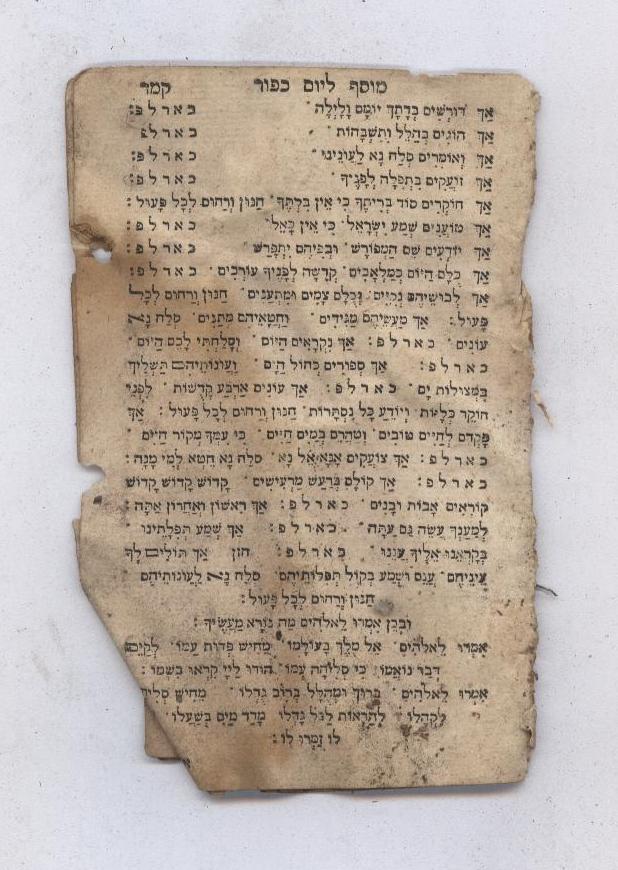 מוסף ליום כפור קמד
אַךְ דּוֹרְשִׁים בְּדָתָךְ יוֹמָם וָלָיְלָה׳ כ א ר ל פ:
אַךְ הוֹגִים בְּהַלֵּל וְתִשְׁבָּחוֹת׳ כ א ר ל פ
אַךְ וְאוֹמְרִים סְלַח נָא לַעֲוֹנֵינוּ׳ כ א ר ל פ:
אַךְ זוֹעֲקִים בִּתְפִלָּה לְפָנֶיךָ׳ כ א ר ל פ:
אַךְ חוֹקְרִים סוֹד בְּרִיתֶךָ כִּי אֵין בִּלְתֶּךָ׳ חַנּוּן וְרַחוּם לְכָל פָּעוּל:
אַךְ טוֹעֲנִים שְׁמַע יִשְׂרָאֵל׳ כִּי אֵין כָּאֵל׳ כ א ר ל פ:
אַךְ יוֹדְעִים שֵׁם הַמְפוֹרָשׁ׳ וּבְפִיהֶם יִתְפָּרֵשׁ׳ כ א ר ל פ:
אַךְ כֻּלָּם הַיּוֹם כְּמַלְאָכִים׳ קְדֻשָּׁה לְפָנֶיךָ עוֹרְכִים׳ כ א ר ל פ:
אַךְ לְבוּשֵׁיהֶם נְקִיִּים׳ וְכֻלָּם צָמִים וּמִתְעַנִּים׳ חַנּוּן וְרַחוּם לְכָל
פָּעוּל: אַךְ מַעֲשֵׂיהֶם מַגִּידִים׳ וַחֲטָאֵיהֶם מַתְנִים׳ סְלַח נָא
עֲוֹנִים׳ כ א ר ל פ: אַךְ נִקְרָאִים הַיּוֹם׳ וְסָלַחְתִּי לָכֶם הַיּוֹם׳
כ א ר ל פ: אַךְ סְפוּרִים כְּחוֹל הַיָּם׳ וַעֲוֹנוֹתֵיהֶם תַּשְׁלִיךְ
בִּמְצוּלוֹת יָם׳ כ א ר ל פ: אַךְ עוֹנִים אַרְבַּע קְדֻשּׁוֹת׳ לִפְנֵי
חוֹקֵר כְּלָיוֹת׳ וְיוֹדֵעַ כָּל נִסְתָּרוֹת׳ חַנּוּן וְרַחוּם לְכָל פָּעוּל: אַךְ
פָּקְדֵם לְחַיִּים טוֹבִים׳ וְטַהֲרֵם בְּמַיִם חַיִּים׳ כִּי עִמְּךָ מְקוֹר חַיִּים׳
כ א ר ל פ: אַךְ צוֹעֲקִים אָנָּא אֵל נָא׳ סְלַח נָא חֵטְא לְמִי מָנָה:
כ א ר ל פ: אַךְ קוֹלָם בְּרַעַשׁ מַרְעִישִׁים׳ קָדוֹשׁ קָדוֹשׁ קָדוֹשׁ
קוֹרְאִים אָבוֹת וּבָנִים׳ כ א ר ל פ: אַךְ רִאשׁוֹן וְאַחֲרוֹן אַתָּה:
לְמַעֲנְךָ עֲשֵׂה גַּם עַתָּה׳ כ א ר ל פ: אַךְ שְׁמַע תְּפִלָּתֵינוּ׳
בְּקָרְאֵנוּ אֵלֶיךָ עֲנֵנוּ׳ כ א ר ל פ: חזן אַךְ תּוֹלִים לָךְ
עֵינֵיהֶם׳ עֲנֵם וּשְׁמַע בְּקוֹל תְּפִלּוֹתֵיהֶם׳ סְלַח נָא לַעֲוֹנוֹתֵיהֶם׳
חַנּוּן וְרַחוּם לְכָל פָּעוּל:
וּבְכֵן אִמְרוּ לֵאלֹהִים מַה נּוֹרָא מַעֲשֶׂיךָ:
אִמְרוּ לֵאלֹהִים׳ אֵל מֶלֶךְ בְּעוֹלָמוֹ׳ מֵחִישׁ פְּדוּת עַמּוֹ׳ לְקַיֵּם
דְּבַר נוֹאֲמוֹ׳ כִּי סְלִיחָה עִמּוֹ׳ הוֹדוּ לַיְיָ קִרְאוּ בִּשְׁמוֹ:
אִמְרוּ לֵאלֹהִים׳ בָּרוּךְ וּמְהֻלָּל בְּרוֹב גָּדְלוֹ׳ מֵחִישׁ
לִקְהָלוֹ׳ לְהַרְאוֹת לַכֹּל גָּדְלוֹ׳ מָדַד מַיִם בְּשָׁעֳלוֹ׳
לוֹ זַמְּרוּ לוֹ: